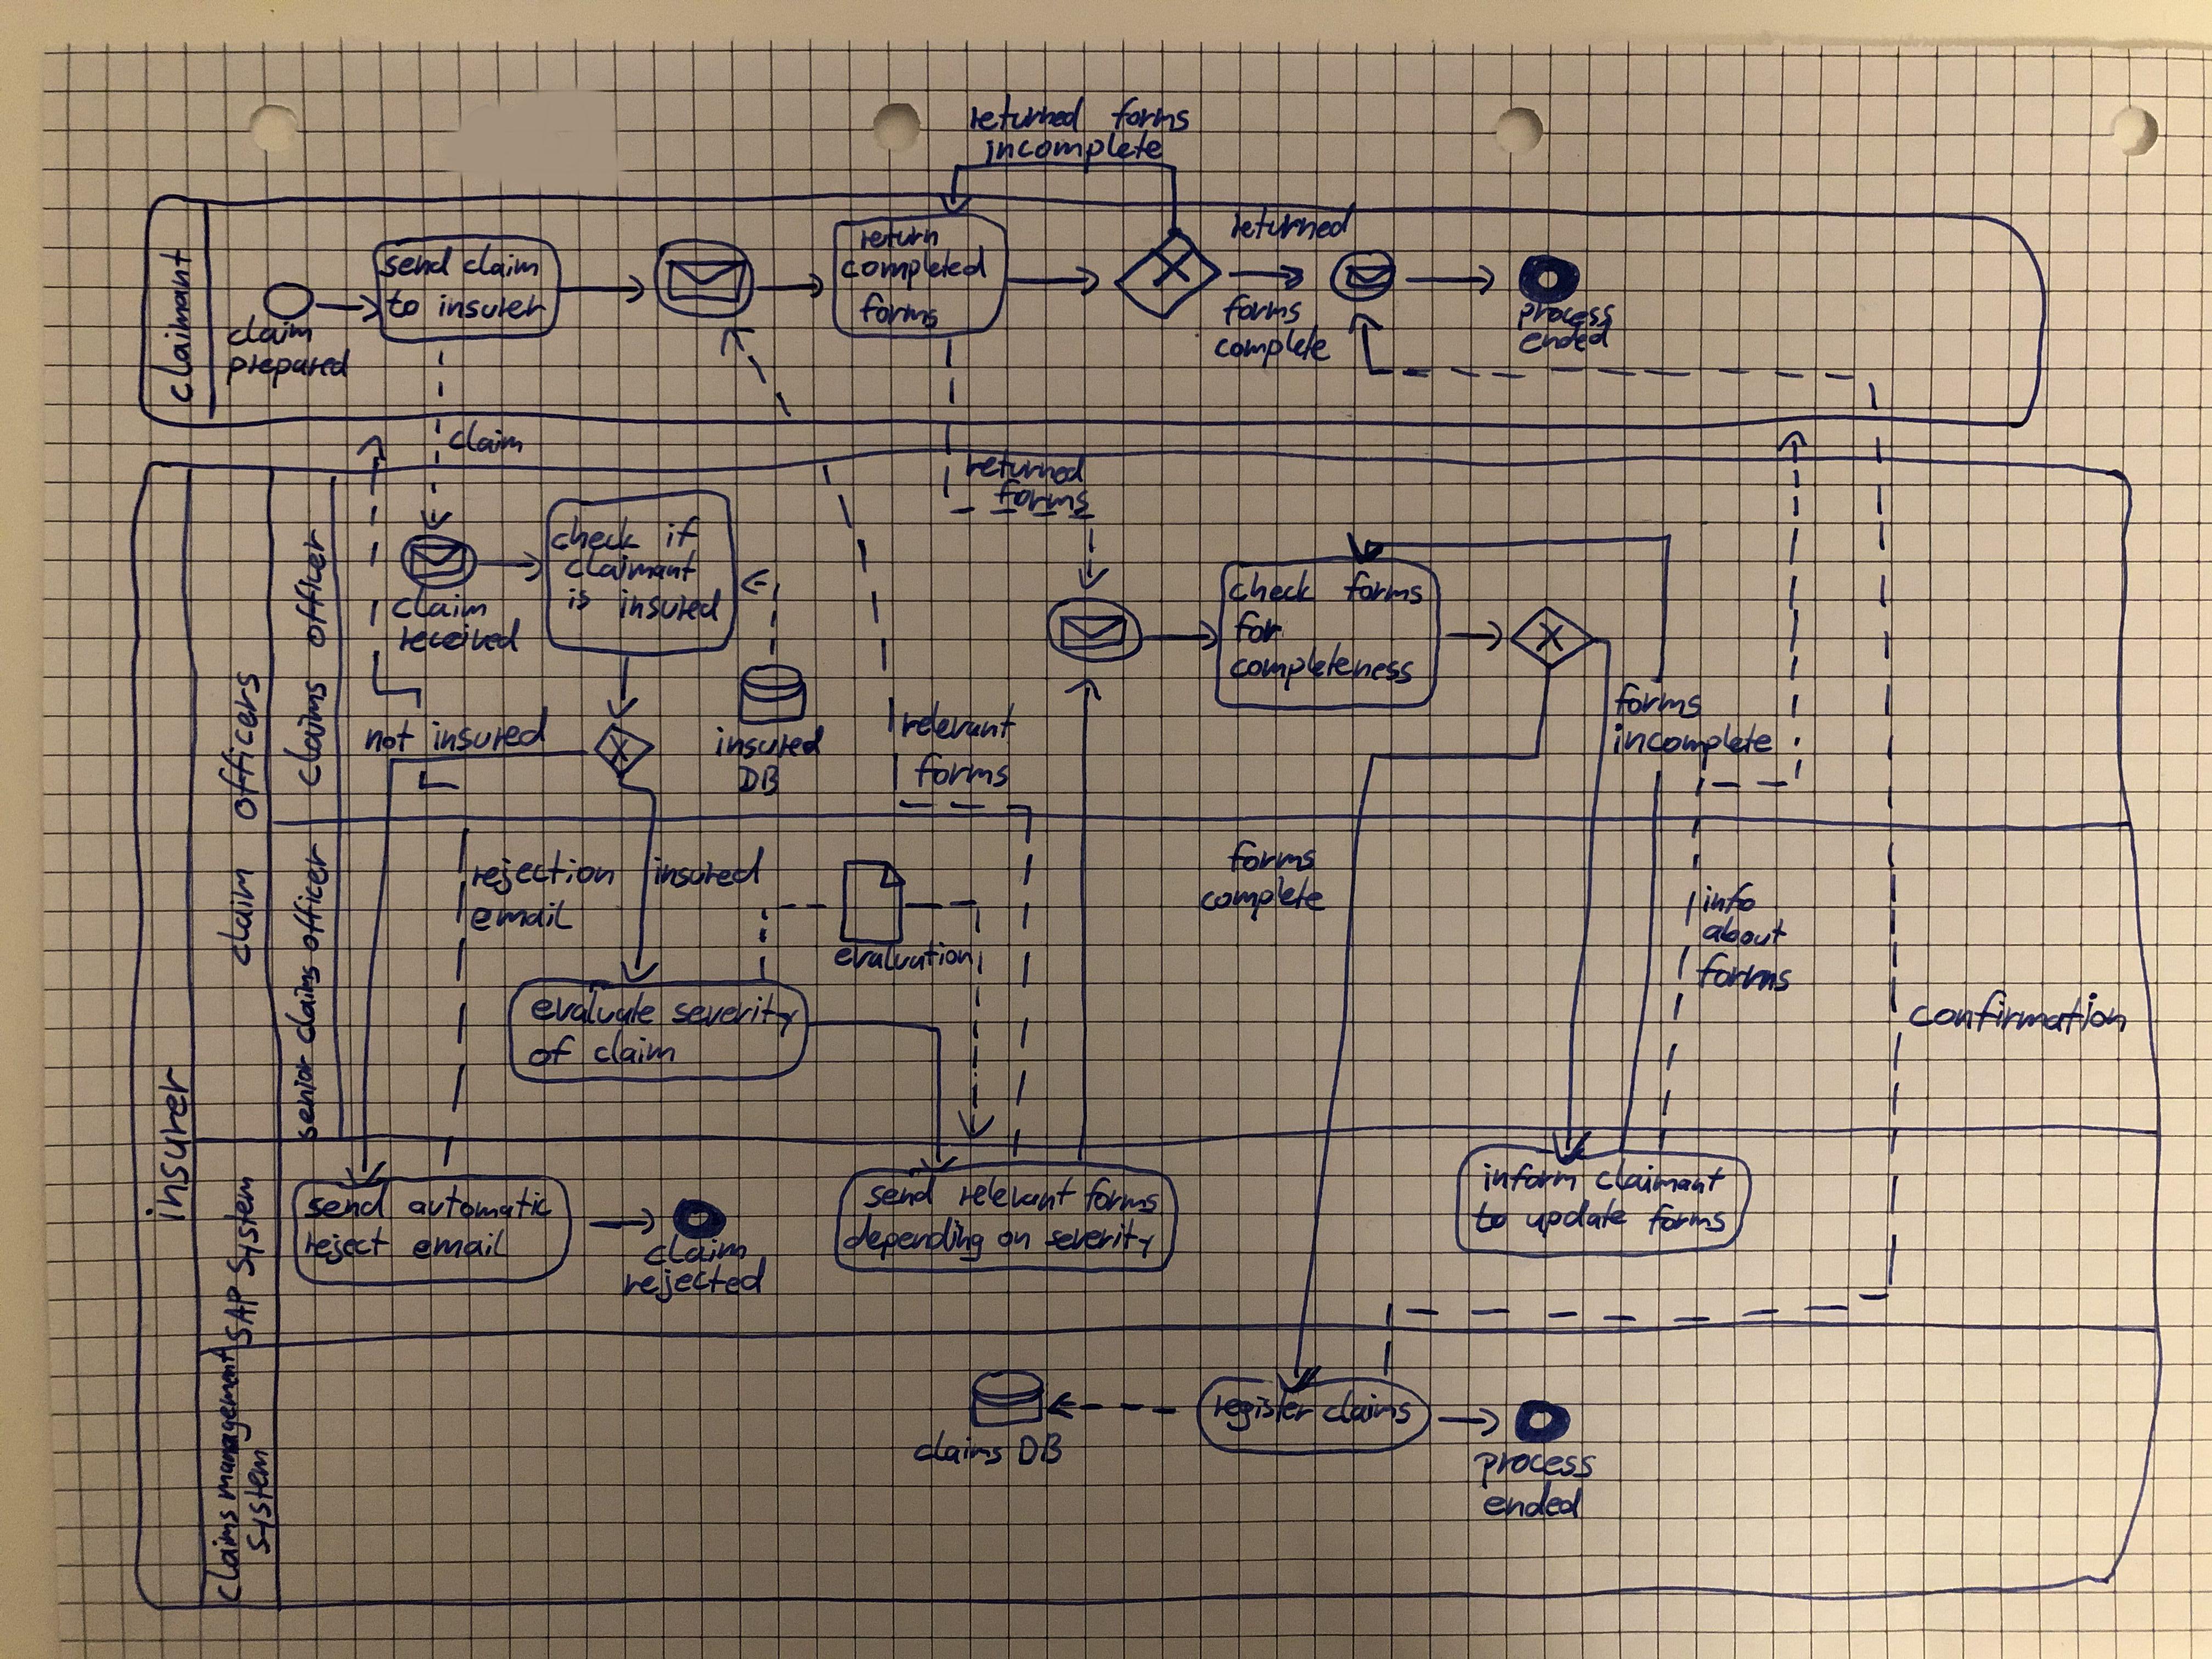 returned forms
incomplete
claimant
claim
prepared
send claim
to insurer
return
completed
forms
returned
forms
complete
process
ended
claim
returned
forms
insurer
claim officers
claims officer
claim
received
check if
claimant
is insured
insured
DB
not insured
relevant
forms
check forms
for
completeness
forms
incomplete
senior claims officer
rejection
email
insured
evaluation
evaluate severity
of claim
forms
complete
info
about
forms
confirmation
SAP System
send automatic
reject email
claim
rejected
send relevant forms
depending on severity
inform claimant
to update forms
claims management
system
claims DB
register claims
process
ended